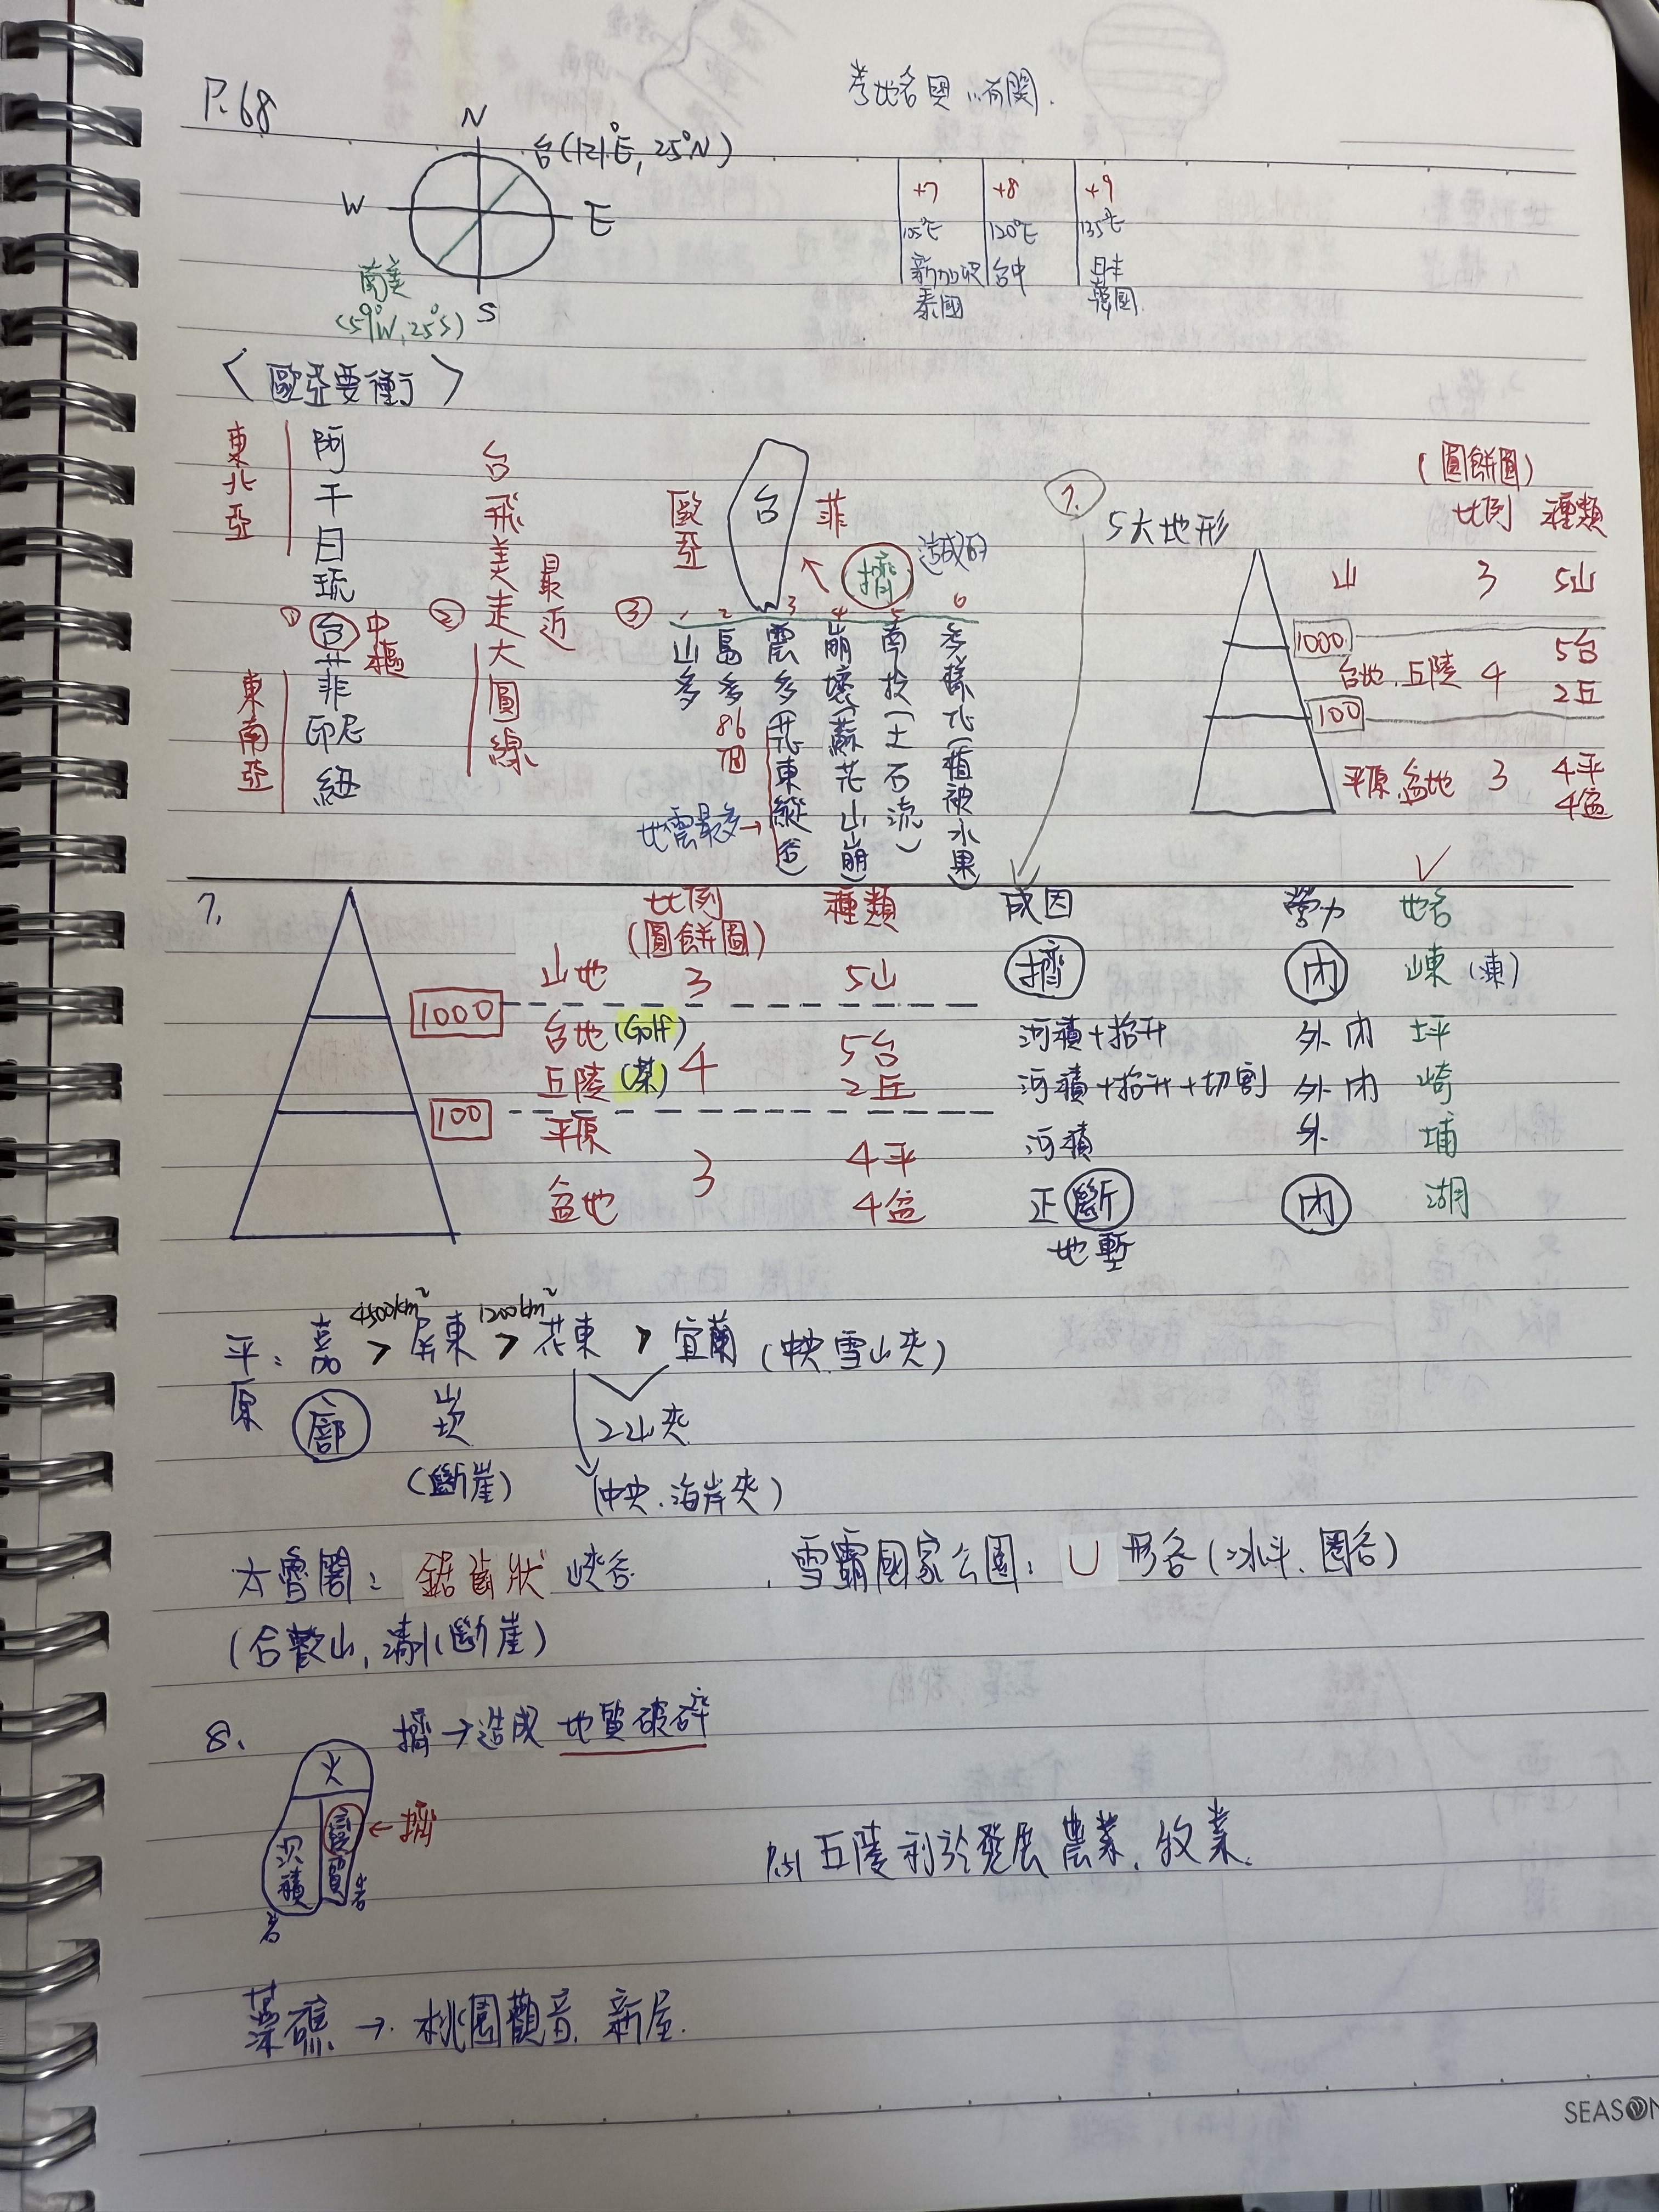 P.68
考地名與…有關.
N
台(121°E, 25°N)
W
E
S
南美
(59°W, 25°S)
+7 +8 +9
105°E 120°E 135°E
新加坡 台中 日本
泰國 韓國
〈歐亞要衝〉
東北亞
阿
千
日
琉
① 台 中樞
菲
印尼
紐
東南亞
② 台飛美走大圓線
最近
③
歐亞
台
菲
擠 造成的
1 山多
2 島多 86個
3 震多(花東縱谷)
4 崩壞(蘇花山崩)
5 南投(土石流)
6 多樣化(植被水果)
地震最多→
7. 5大地形
(圓餅圖)
比例 種類
山 3 5山
1000
台地.丘陵 4 5台
2丘
100
平原.盆地 3 4平
4盆
7.
比例 種類 成因 營力 地名
(圓餅圖)
山地 3 5山 擠 內 崠(凍)
1000
台地(Golf) 5台 河積+抬升 外內 坪
4
丘陵(茶) 2丘 河積+抬升+切割 外內 崎
100
平原 4平 河積 外 埔
3
盆地 4盆 正斷 內 湖
地塹
4500km² 1200km²
平原: 嘉 > 屏東 > 花東 > 宜蘭 (中央.雪山夾)
廍 崁 2山夾
(斷崖) (中央.海岸夾)
太魯閣: 鋸齒狀 峽谷
.雪霸國家公園: U 形谷(冰斗、圈谷)
(合歡山,清水斷崖)
8. 擠→造成 地質破碎
火
沉積岩
變質岩
←擠
丘陵利於發展農業.牧業.
藻礁 → 桃園觀音.新屋.
SEASON